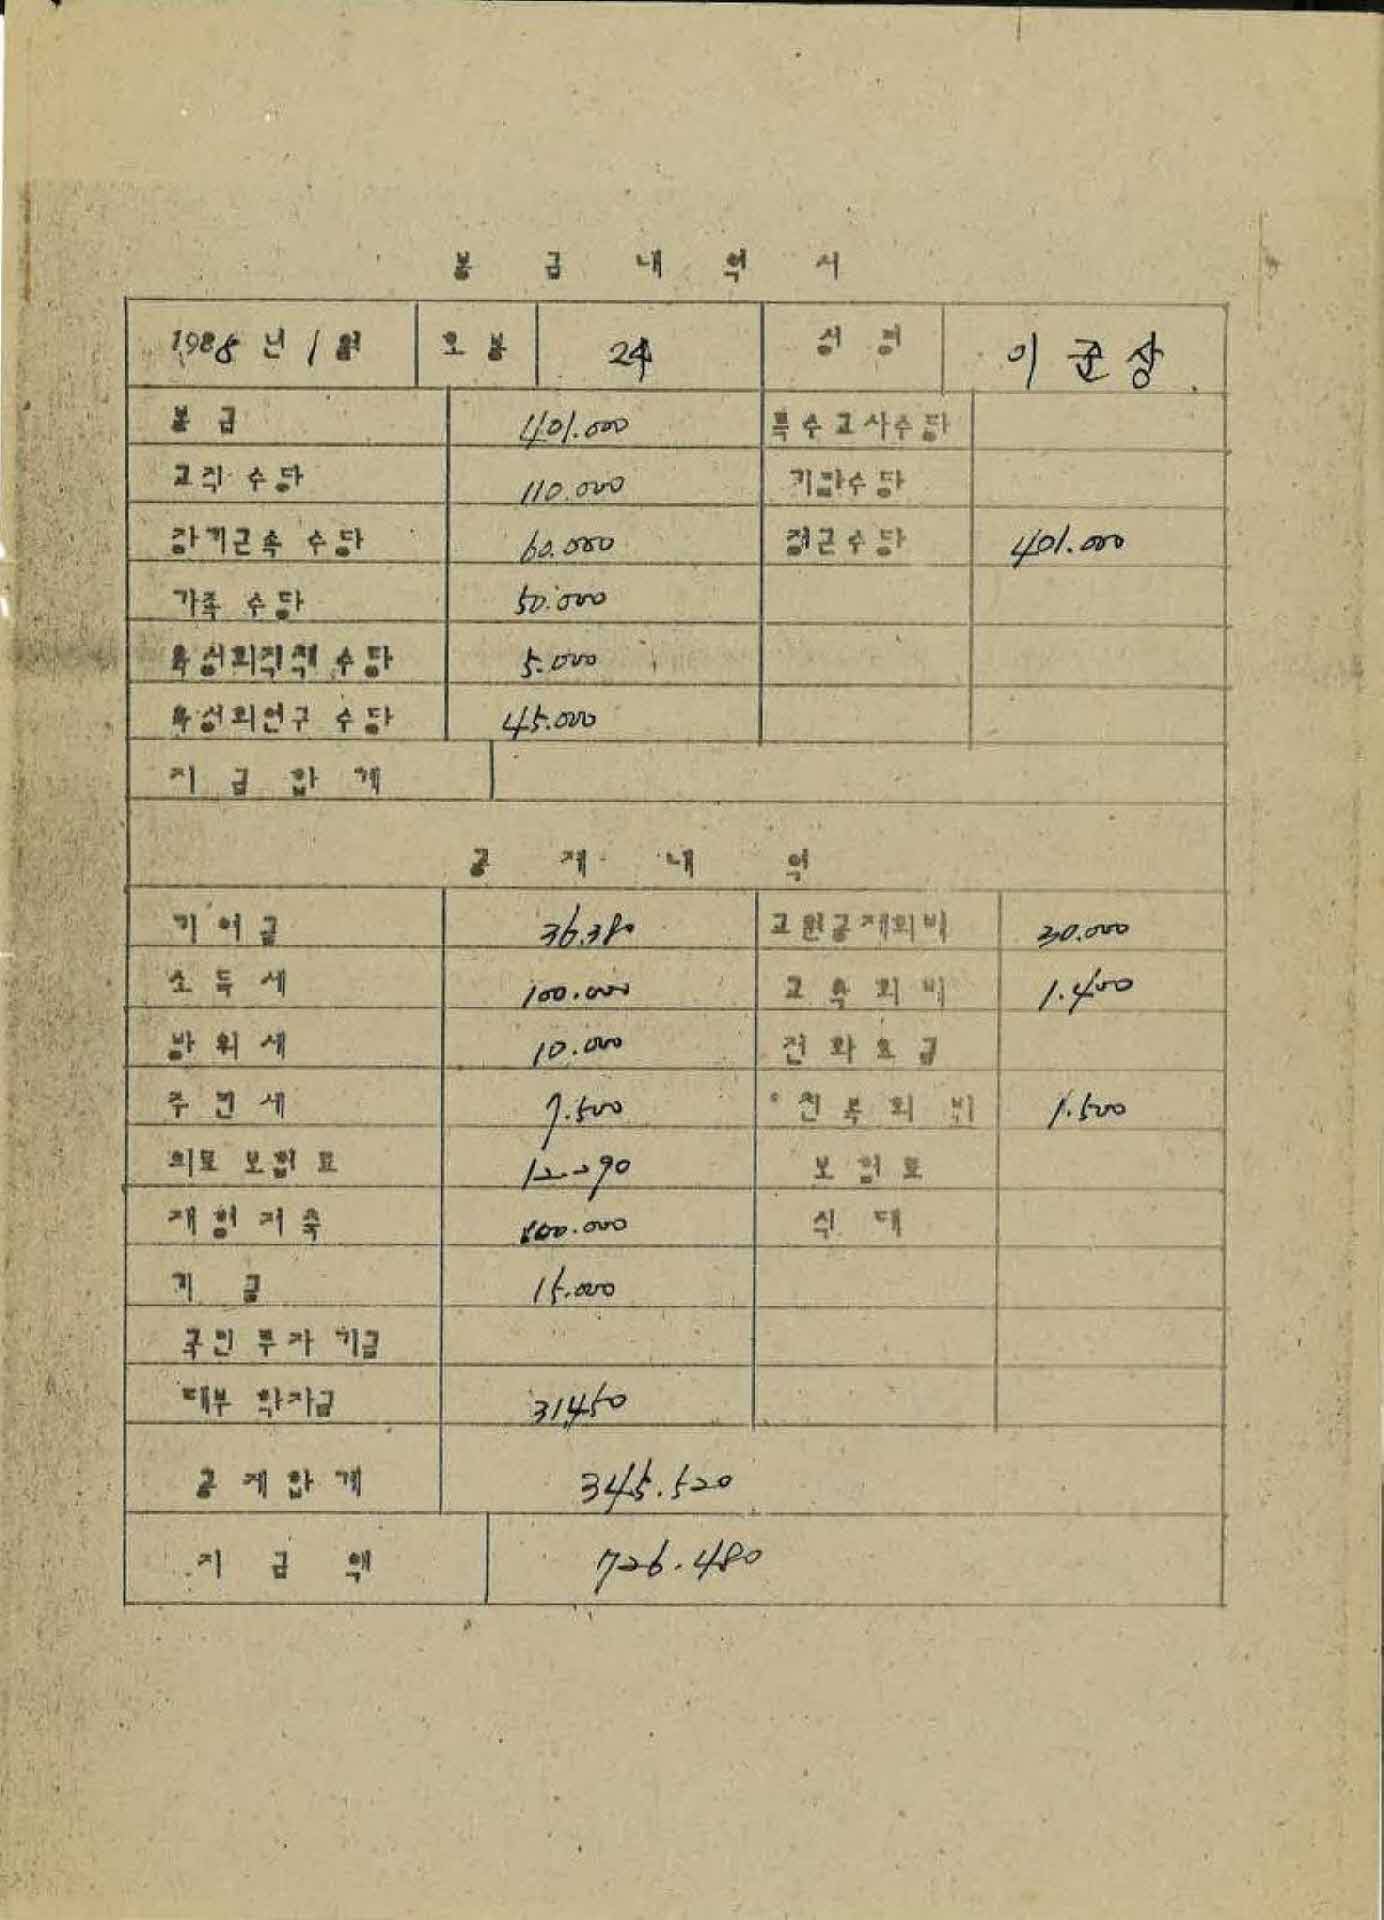 봉급내역서
1988년 1월 호봉 24 성명 이균상
봉급 401.000 특수교사수당
교직 수당 110.000 기말수당
장기근속 수당 60.000 정근수당 401.000
가족 수당 50.000
육성회직책 수당 5.000
육성회연구 수당 45.000
지급합계
공제내역
기여금 36.380 교원공제회비 30.000
소득세 100.000 교육회비 1.400
방위세 10.000 전화요금
주민세 7.500 친목회비 1.500
의료 보험료 12290 보험료
재형저축 100.000 식대
기금 15.000
국민 투자 기금
대부 학자금 31450
공제합계 345.520
지급액 726.480